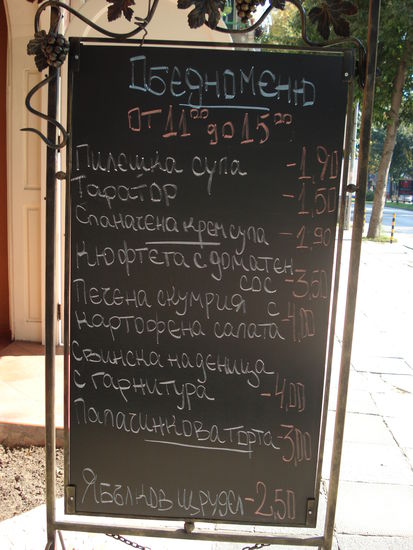 Обедно меню
от 11⁰⁰ до 15⁰⁰
Пилешка супа - 1,90
Таратор - 1,50
Спаначена крем супа - 1,90
Кюфтета с доматен
сос - 3,50
Печена скумрия с
картофена салата 4,00
Свинска наденица
с гарнитура - 4,00
Палачинкова торта - 3,00
Ябълков щрудел - 2,50